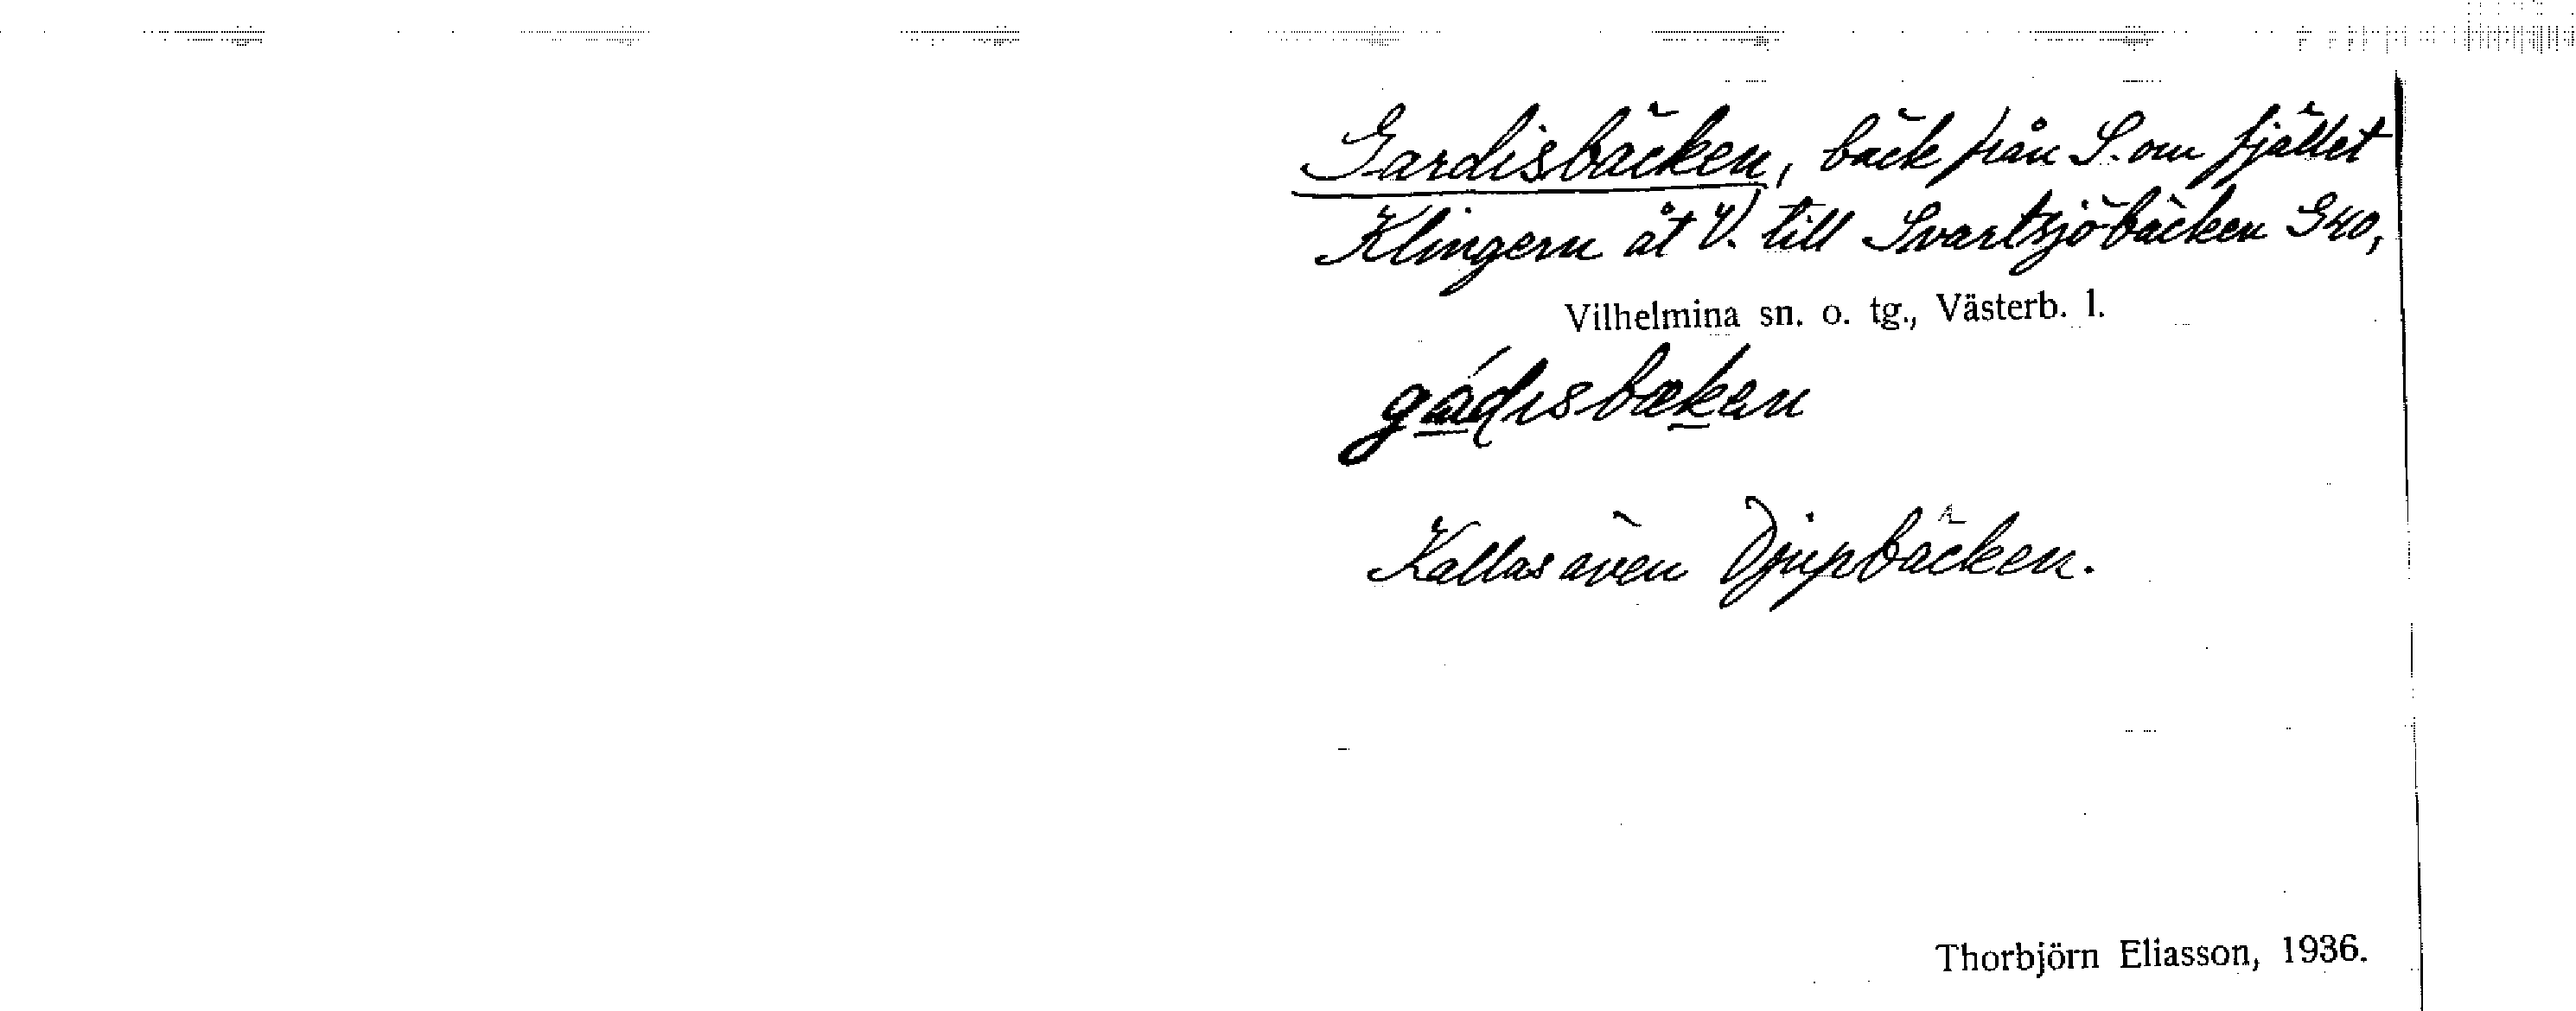 Gardisbäcken, bäck från S. om fjället
Klingern åt V. till Svartsjöbäcken G40,
Vilhelmina sn. o. tg., Västerb. l.
gádisbækan
Kallas även Djupbäcken.
Thorbjörn Eliasson, 1936.